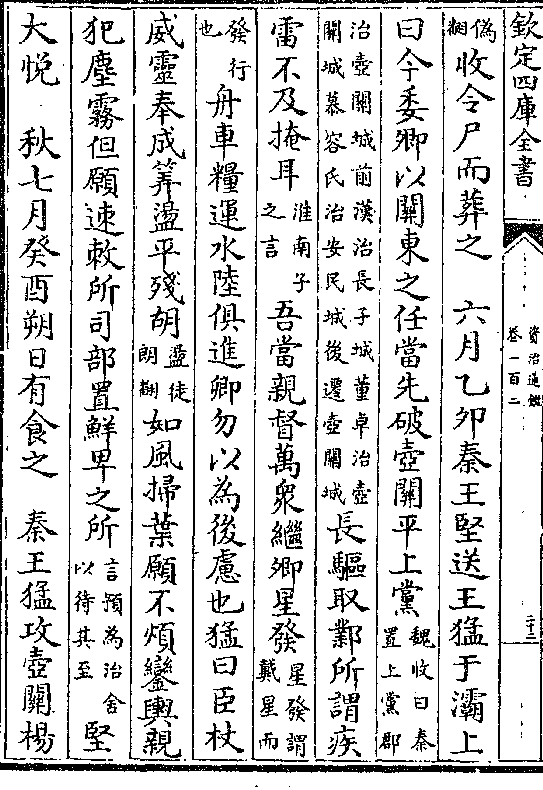 欽定四庫全書
資治通鑑
卷一百二
二十三
偽翻收令尸而葬之　六月乙卯秦王堅送王猛于灞上
曰今委卿以關東之任當先破壺關平上黨魏收曰秦置上黨郡
治壺關城前漢治長子城董卓治壺關城慕容氏治安民城後遷壺關城長驅取鄴所謂疾
雷不及掩耳淮南子之言吾當親督萬衆繼卿星發星發謂戴星而
發行也舟車糧運水陸俱進卿勿以為後慮也猛曰臣杖
威靈奉成筭盪平殘胡盪徒朗翻如風掃葉願不煩鑾輿親
犯塵霧但願速敕所司部置鮮卑之所言預為治舍以待其至堅
大悅　秋七月癸酉朔日有食之　秦王猛攻壺關楊